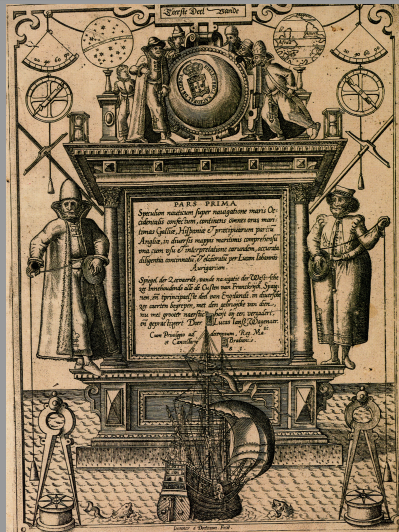 Eerste Deel Vande
PARS PRIMA
Speculum nauticum super navigatione maris Oc-
cidentalis confectum, continens omnes oras mari-
timas Galliæ, Hispaniæ & præcipuarum partiũ
Angliæ, in diversis mappis maritimis comprehensũ
unà cum usu & interpretatione earundem, accurata
diligentia concinnatũ, & elaboratũ per Lucam Iohannis
Aurigarium
Spiegel der Zeevaerdt, vande navigatie der Westersche
zee Innehoudende alle de Custen van Vranckrijck Spaig-
nen, en̄ t'principaelste deel van Engelandt, in diversche
zee caerten begrepen, met den gebruijcke van dien,
nu met grooter naersticheyt bij een vergadert,
en̄ gepractizeert Door Lucas Iansz Wagenaer
Cum Privilegio ad decennium, Reg. Ma.
et Cancellarie Brabanc.
Ioannes a Doetecum Fecit.